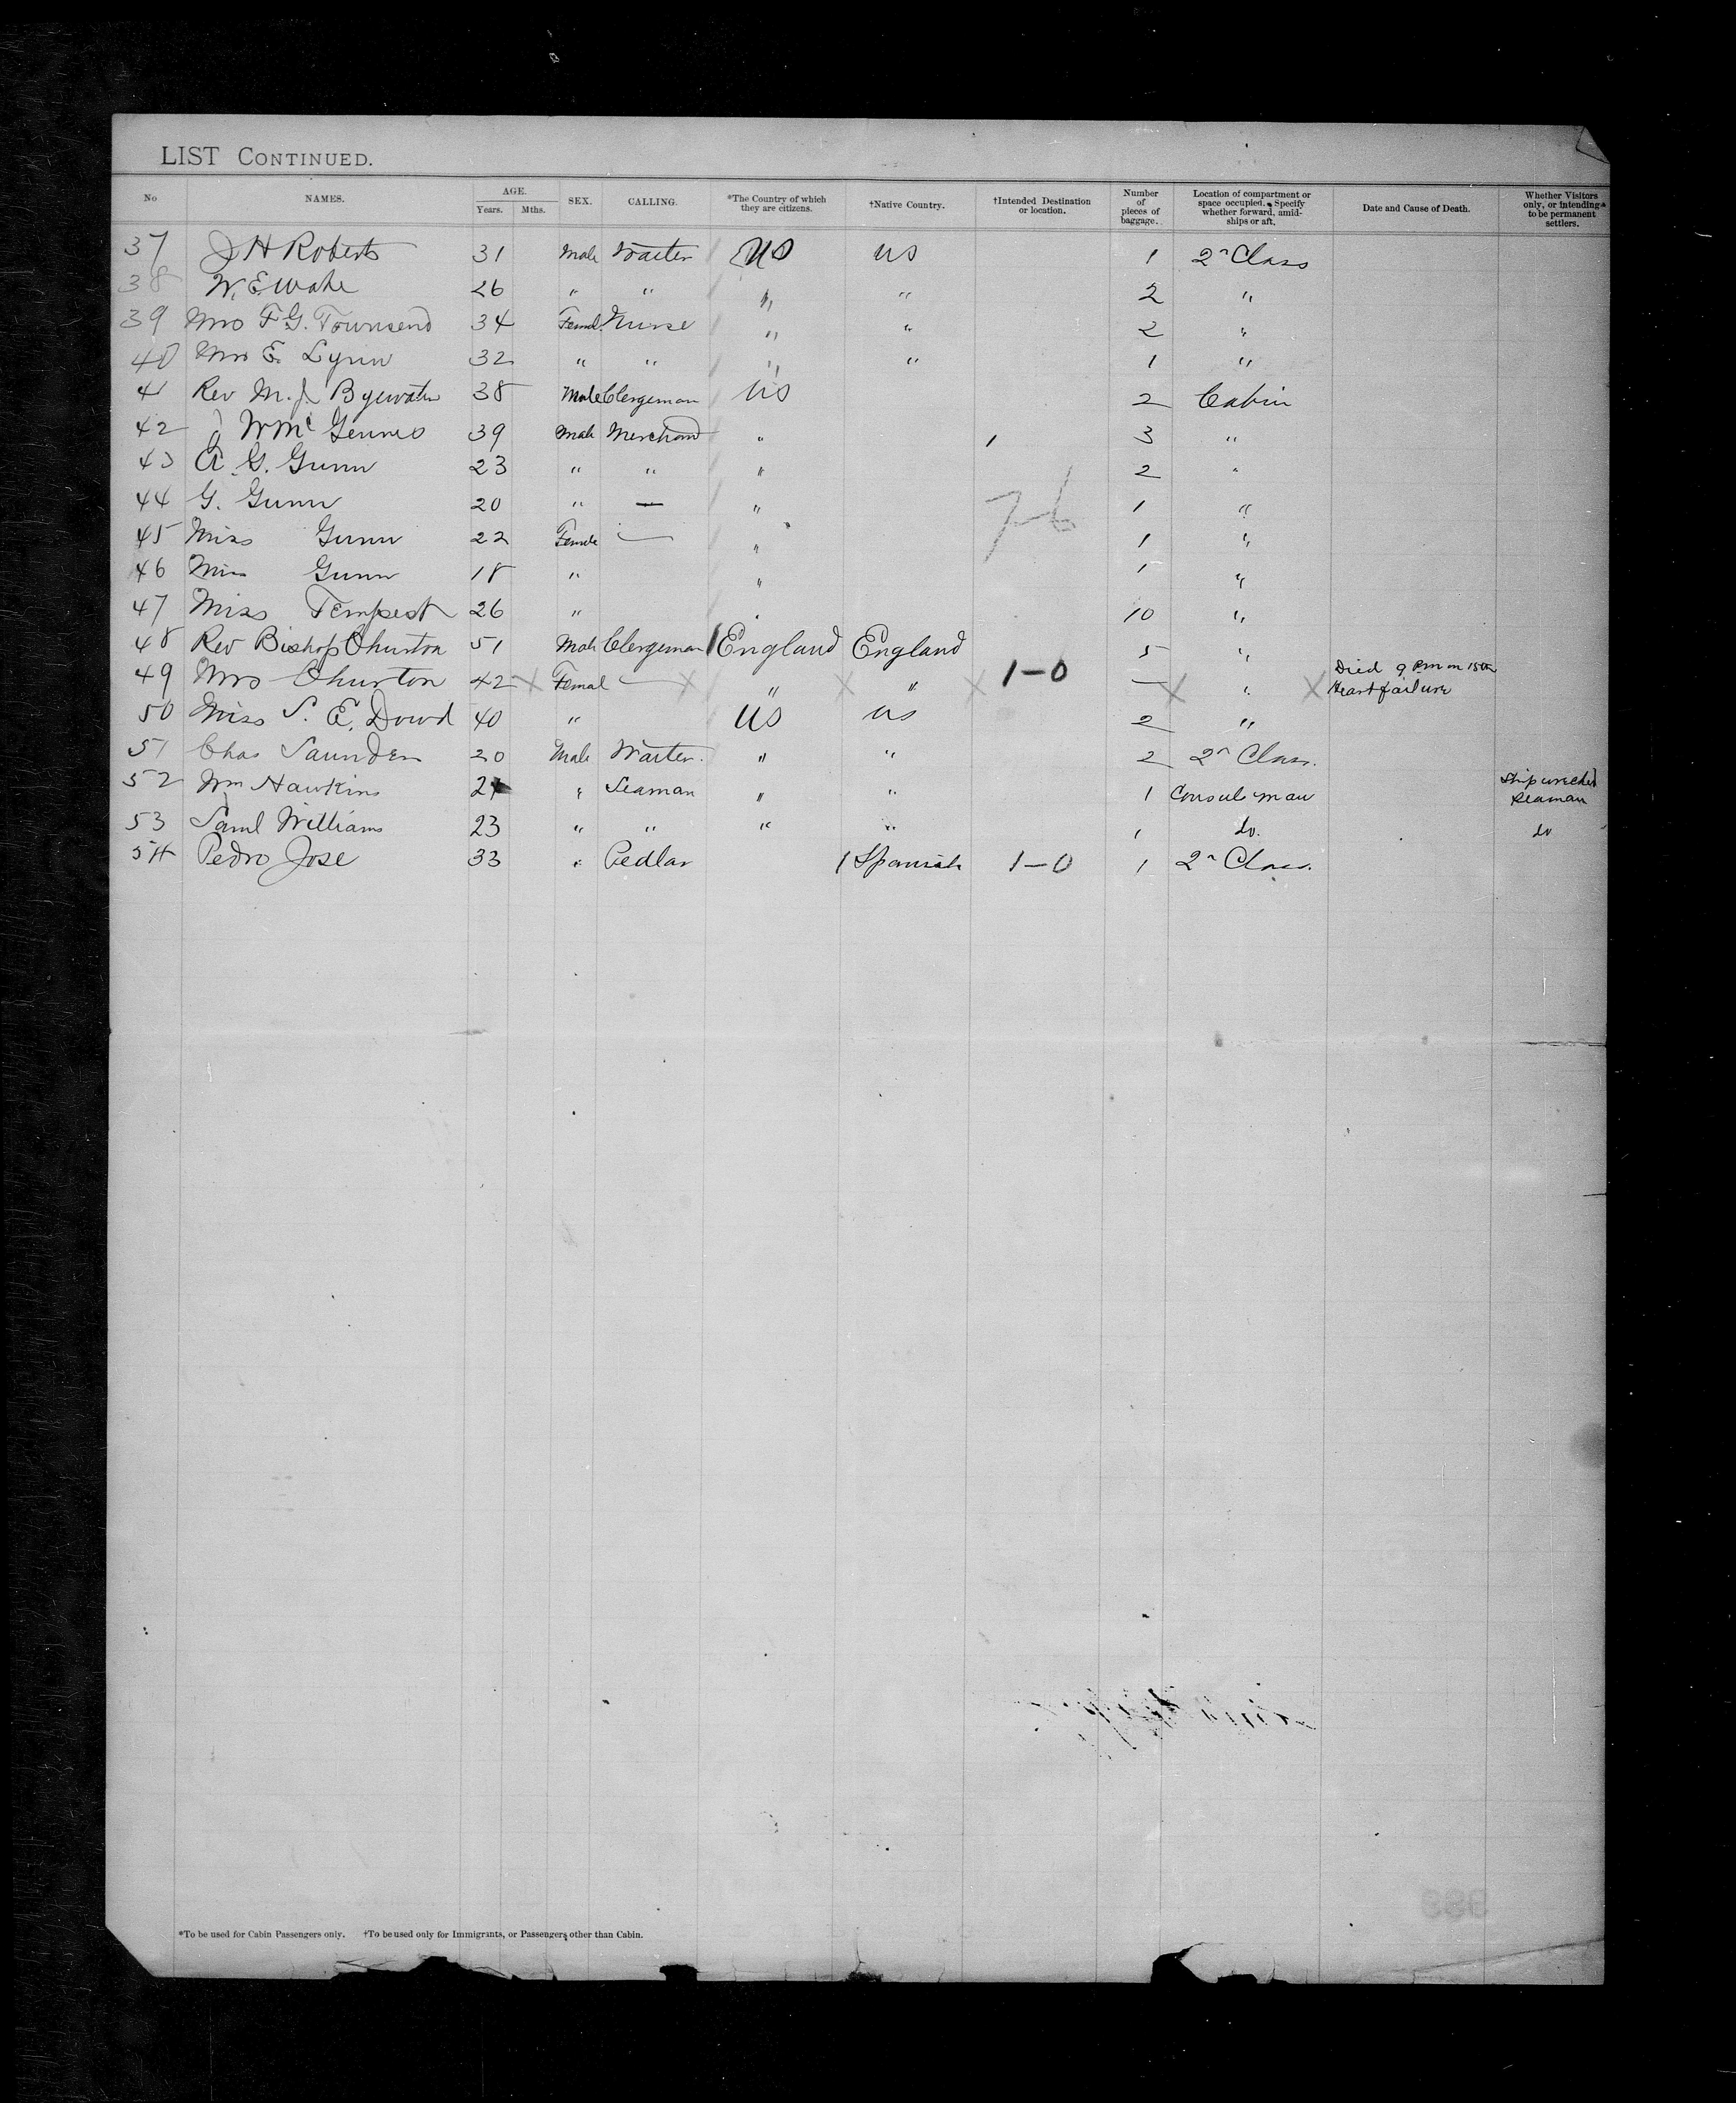 LIST CONTINUED.
No NAMES. AGE. Years. Mths. SEX. CALLING. *The Country of which they are citizens. †Native Country. †Intended Destination or location. Number of pieces of baggage. Location of compartment or space occupied. Specify whether forward, amidships or aft. Date and Cause of Death. Whether Visitors only, or intending to be permanent settlers.
37 J H Roberts 31 Male Waiter US US 1 2n Class
38 W. E. Wake 26 " " " " 2 "
39 Mrs F G. Townsend 34 Femal. Nurse " " 2 "
40 Mrs E. Lynn 32 " " " " 1 "
41 Rev M. J. Byewater 38 Male Clergeman US 2 Cabin
42 39 Male Merchand " 1 3 "
43 A. G. Gunn 23 " " " 2 "
44 G. Gunn 20 " — " 1 "
76
45 Miss Gunn 22 Female — " 1 "
46 Miss Gunn 18 " " 1 "
47 Miss Tempest 26 " " 10 "
48 Rev Bishop Churton 51 Male Clergeman 1 England England 5 "
49 Mrs Churton 42 X Femal — X " X " X 1-0 — X " X Died 9 Pm on 15th
Heart failure
50 Miss S. E. Dowd 40 " US US 2 "
51 Chas Saunders 20 Male Waiter. " " 2 2n Class.
52 Wm Hawkins " Seaman " " 1 Consuls man Shipwrecked
Seaman
53 Saml Williams 23 " " " " 1 do. do
54 Pedro Jose 33 " Pedlar 1 Spanish 1-0 1 2n Class.
*To be used for Cabin Passengers only. †To be used only for Immigrants, or Passengers other than Cabin.